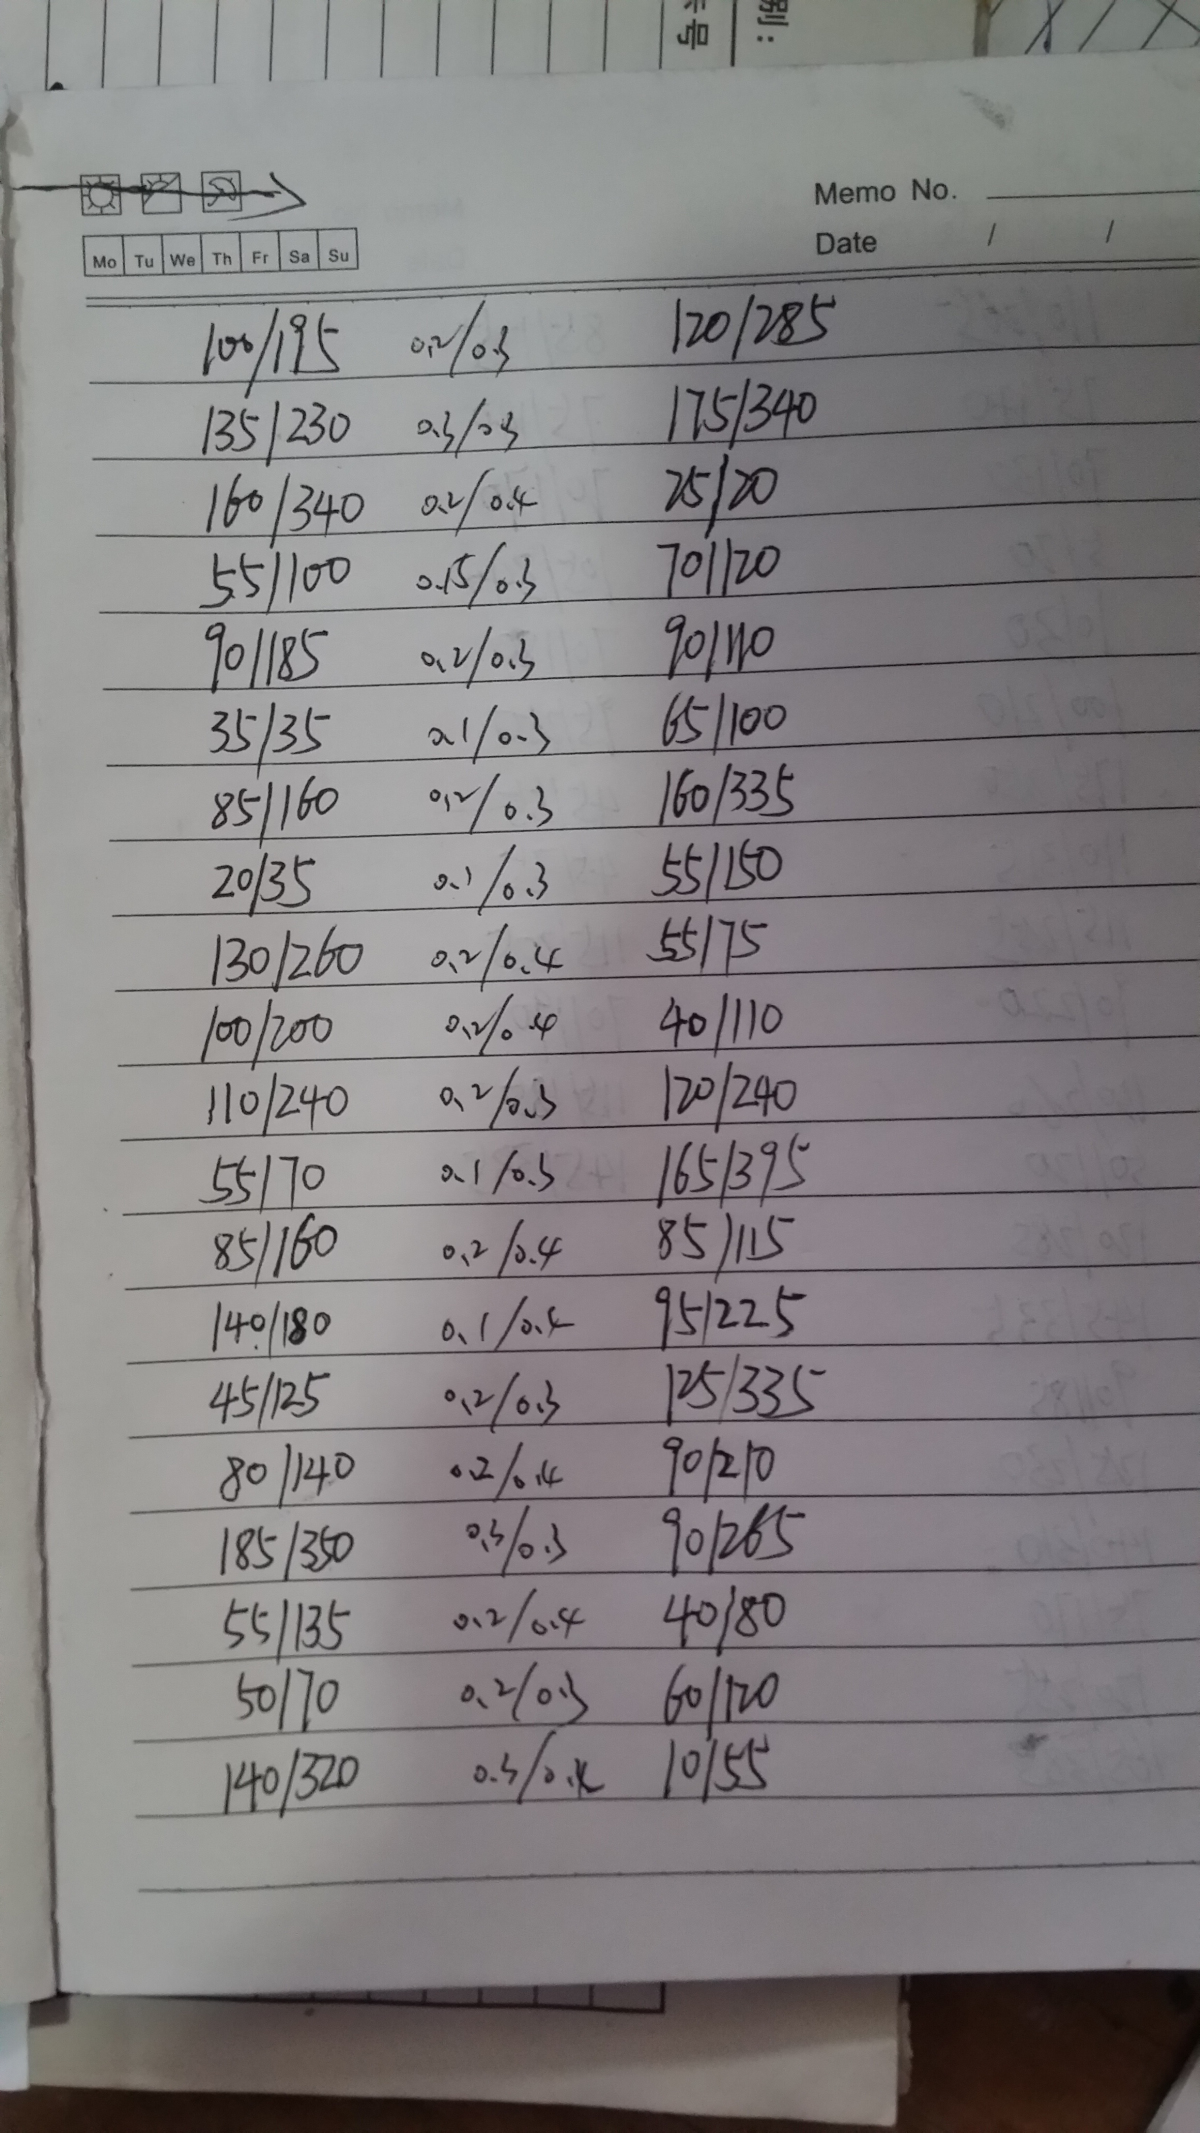 别:
号
Memo No.
Date / /
Mo Tu We Th Fr Sa Su
100/195 0.2/0.3 120/285
135/230 0.3/0.3 175/340
160/340 0.2/0.4 25/20
55/100 0.15/0.3 70/120
90/185 0.2/0.3 90/110
35/35 0.1/0.3 65/100
85/160 0.2/0.3 160/335
20/35 0.1/0.3 55/150
130/260 0.2/0.4 55/75
100/200 0.2/0.4 40/110
110/240 0.2/0.3 120/240
55/70 0.1/0.3 165/395
85/160 0.2/0.4 85/115
140/180 0.1/0.4 95/225
45/125 0.2/0.3 125/335
80/140 0.2/0.4 90/210
185/350 0.3/0.3 90/265
55/135 0.2/0.4 40/80
50/70 0.2/0.3 60/120
140/320 0.3/0.4 10/55